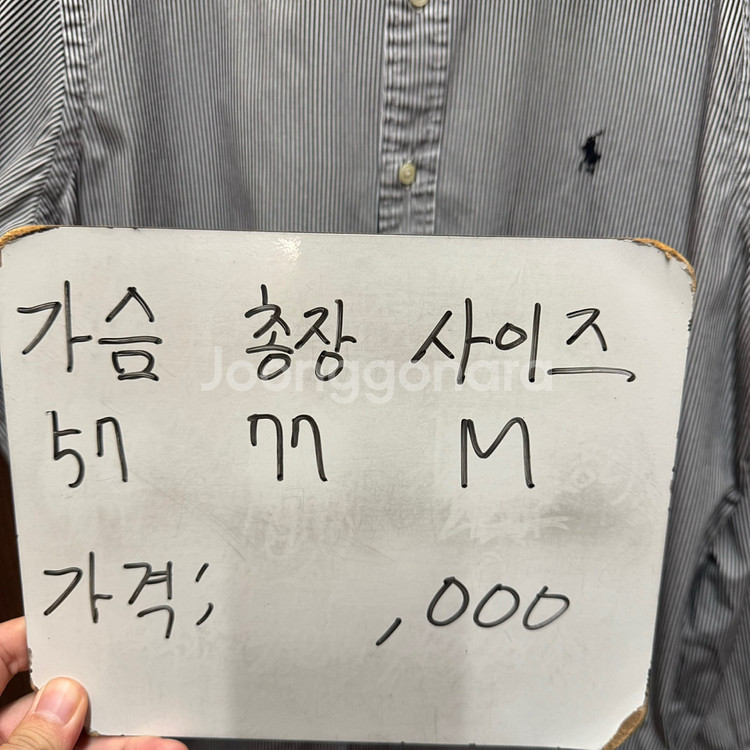 가슴 총장 사이즈
Joonggonara
57 77 M
가격; ,000